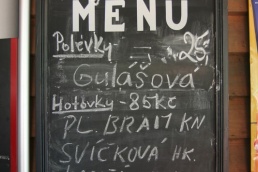 MENU
Polévky 25,-
Gulašová
Hotovky - 85kc
PL. BRAM KN
SVÍČKOVÁ HK.